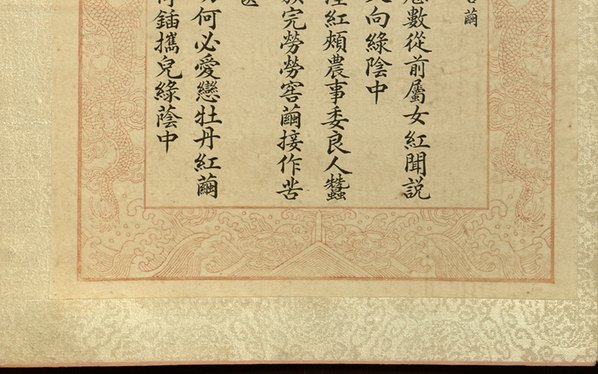 窖繭
數從前屬女紅聞説
向綠陰中
紅頰農事委良人蠶
族完勞勞窖繭接作苦
何必愛戀牡丹紅繭
鍤攜兒綠蔭中